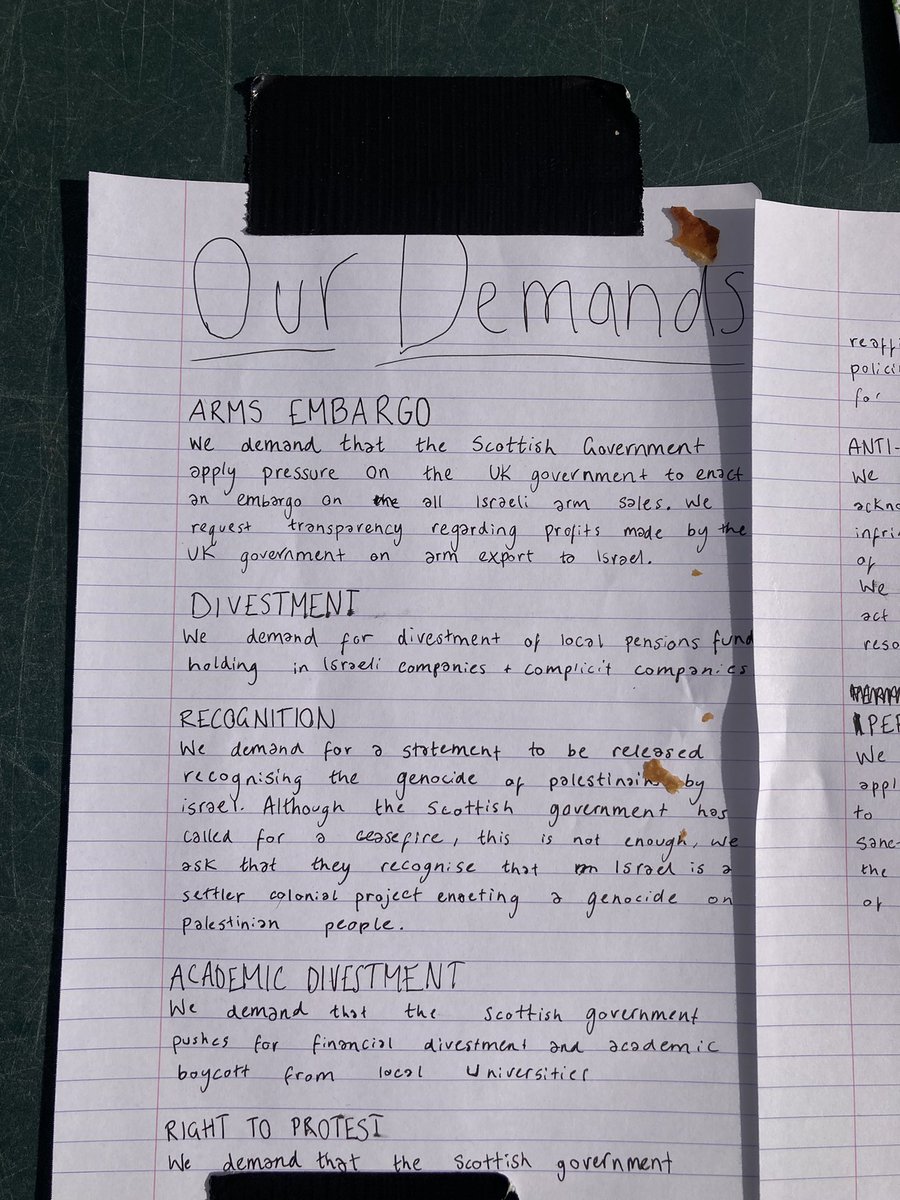 Our Demands
ARMS EMBARGO
We demand that the Scottish Government
apply pressure on the UK government to enact
an embargo on all Israeli arm sales. We
request transparency regarding profits made by the
UK government on arm export to Israel.
DIVESTMENT
We demand for divestment of local pensions fund
holding in Israeli companies + complicit companies
RECOGNITION
We demand for a statement to be released
recognising the genocide of by
israel. Although the Scottish government has
called for a ceasefire, this is not enough, we
ask that they recognise that Israel is a
settler colonial project enacting a genocide on
Palestinian people.
ACADEMIC DIVESTMENT
We demand that the Scottish government
pushes for financial divestment and academic
boycott from local Universities
RIGHT TO PROTEST
We demand that the Scottish government
for
ANTI-
We
of
We
act
We
to
the
of